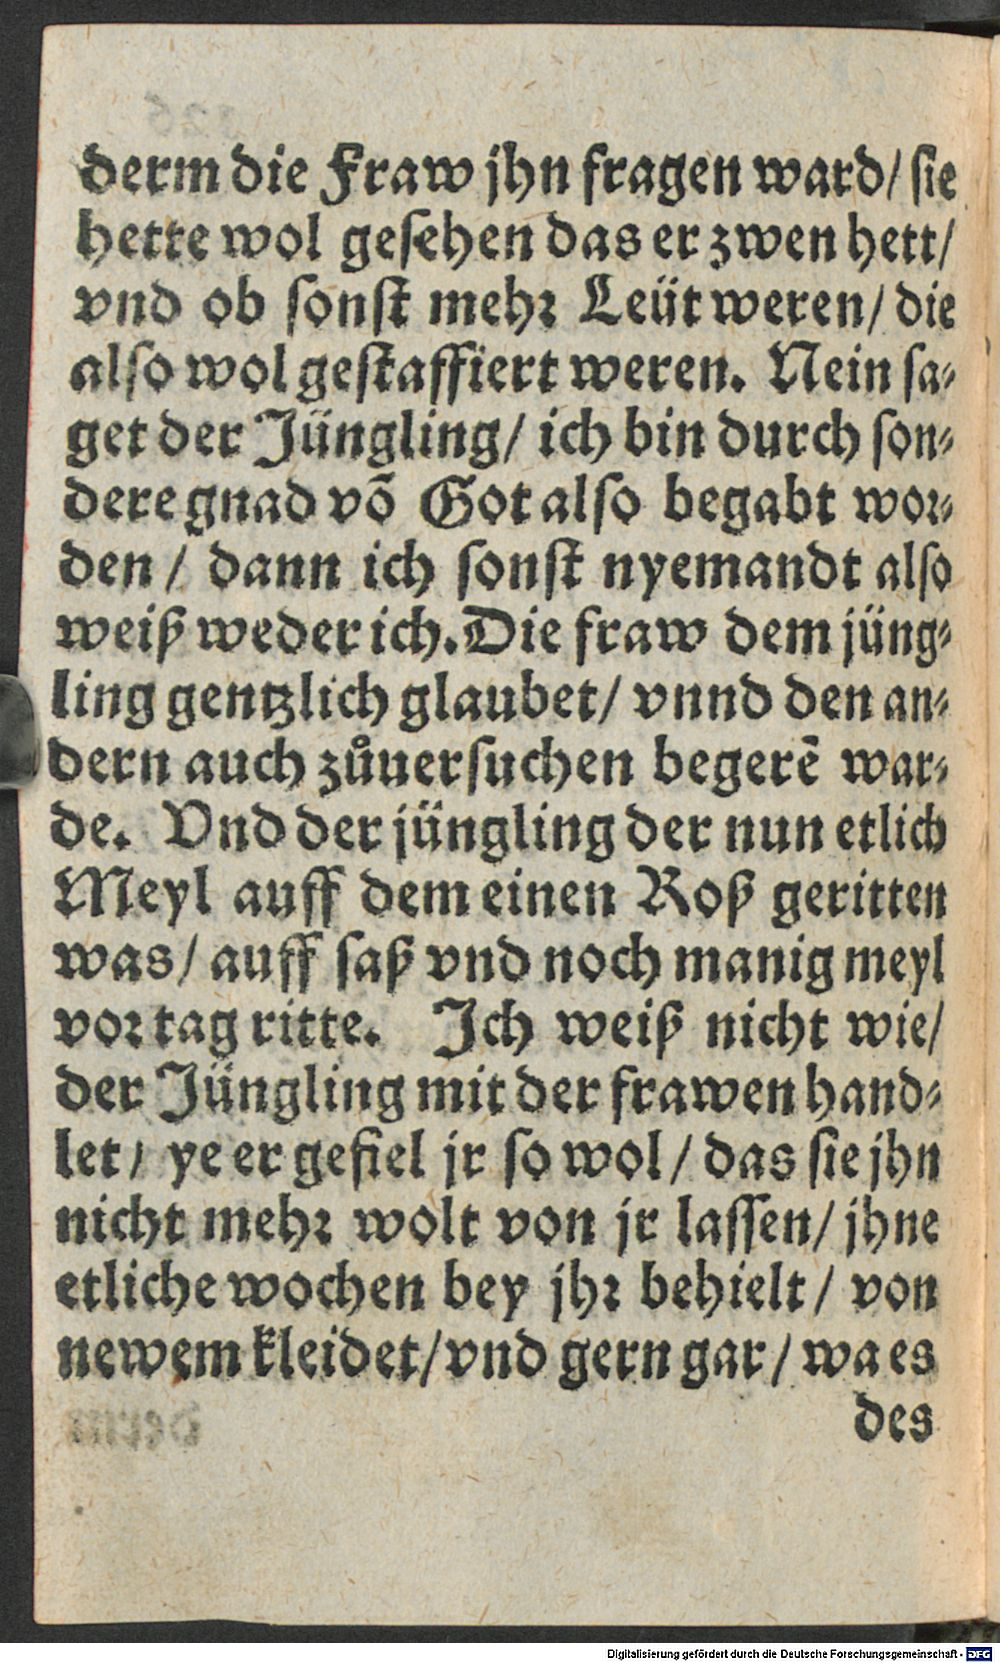 derm die Fraw jhn fragen ward/ sie
hette wol gesehen das er zwen hett/
vnd ob sonst mehr Leüt weren/ die
also wol gestaffiert weren. Nein sa-
get der Jüngling/ ich bin durch son-
dere gnad võ Got also begabt wor-
den/ dann ich sonst nyemandt also
weiß weder ich. Die fraw dem jüng-
ling gentzlich glaubet/ vnnd den an-
dern auch zůuersuchen begerẽ war-
de. Vnd der jüngling der nun etlich
Meyl auff dem einen Roß geritten
was/ auff saß vnd noch manig meyl
vor tag ritte. Ich weiß nicht wie/
der Jüngling mit der frawen hand-
let/ ye er gefiel jr so wol/ das sie jhn
nicht mehr wolt von jr lassen/ jhne
etliche wochen bey jhr behielt/ von
newem kleidet/ vnd gern gar/ wa es
des
Digitalisierung gefördert durch die Deutsche Forschungsgemeinschaft - DFG